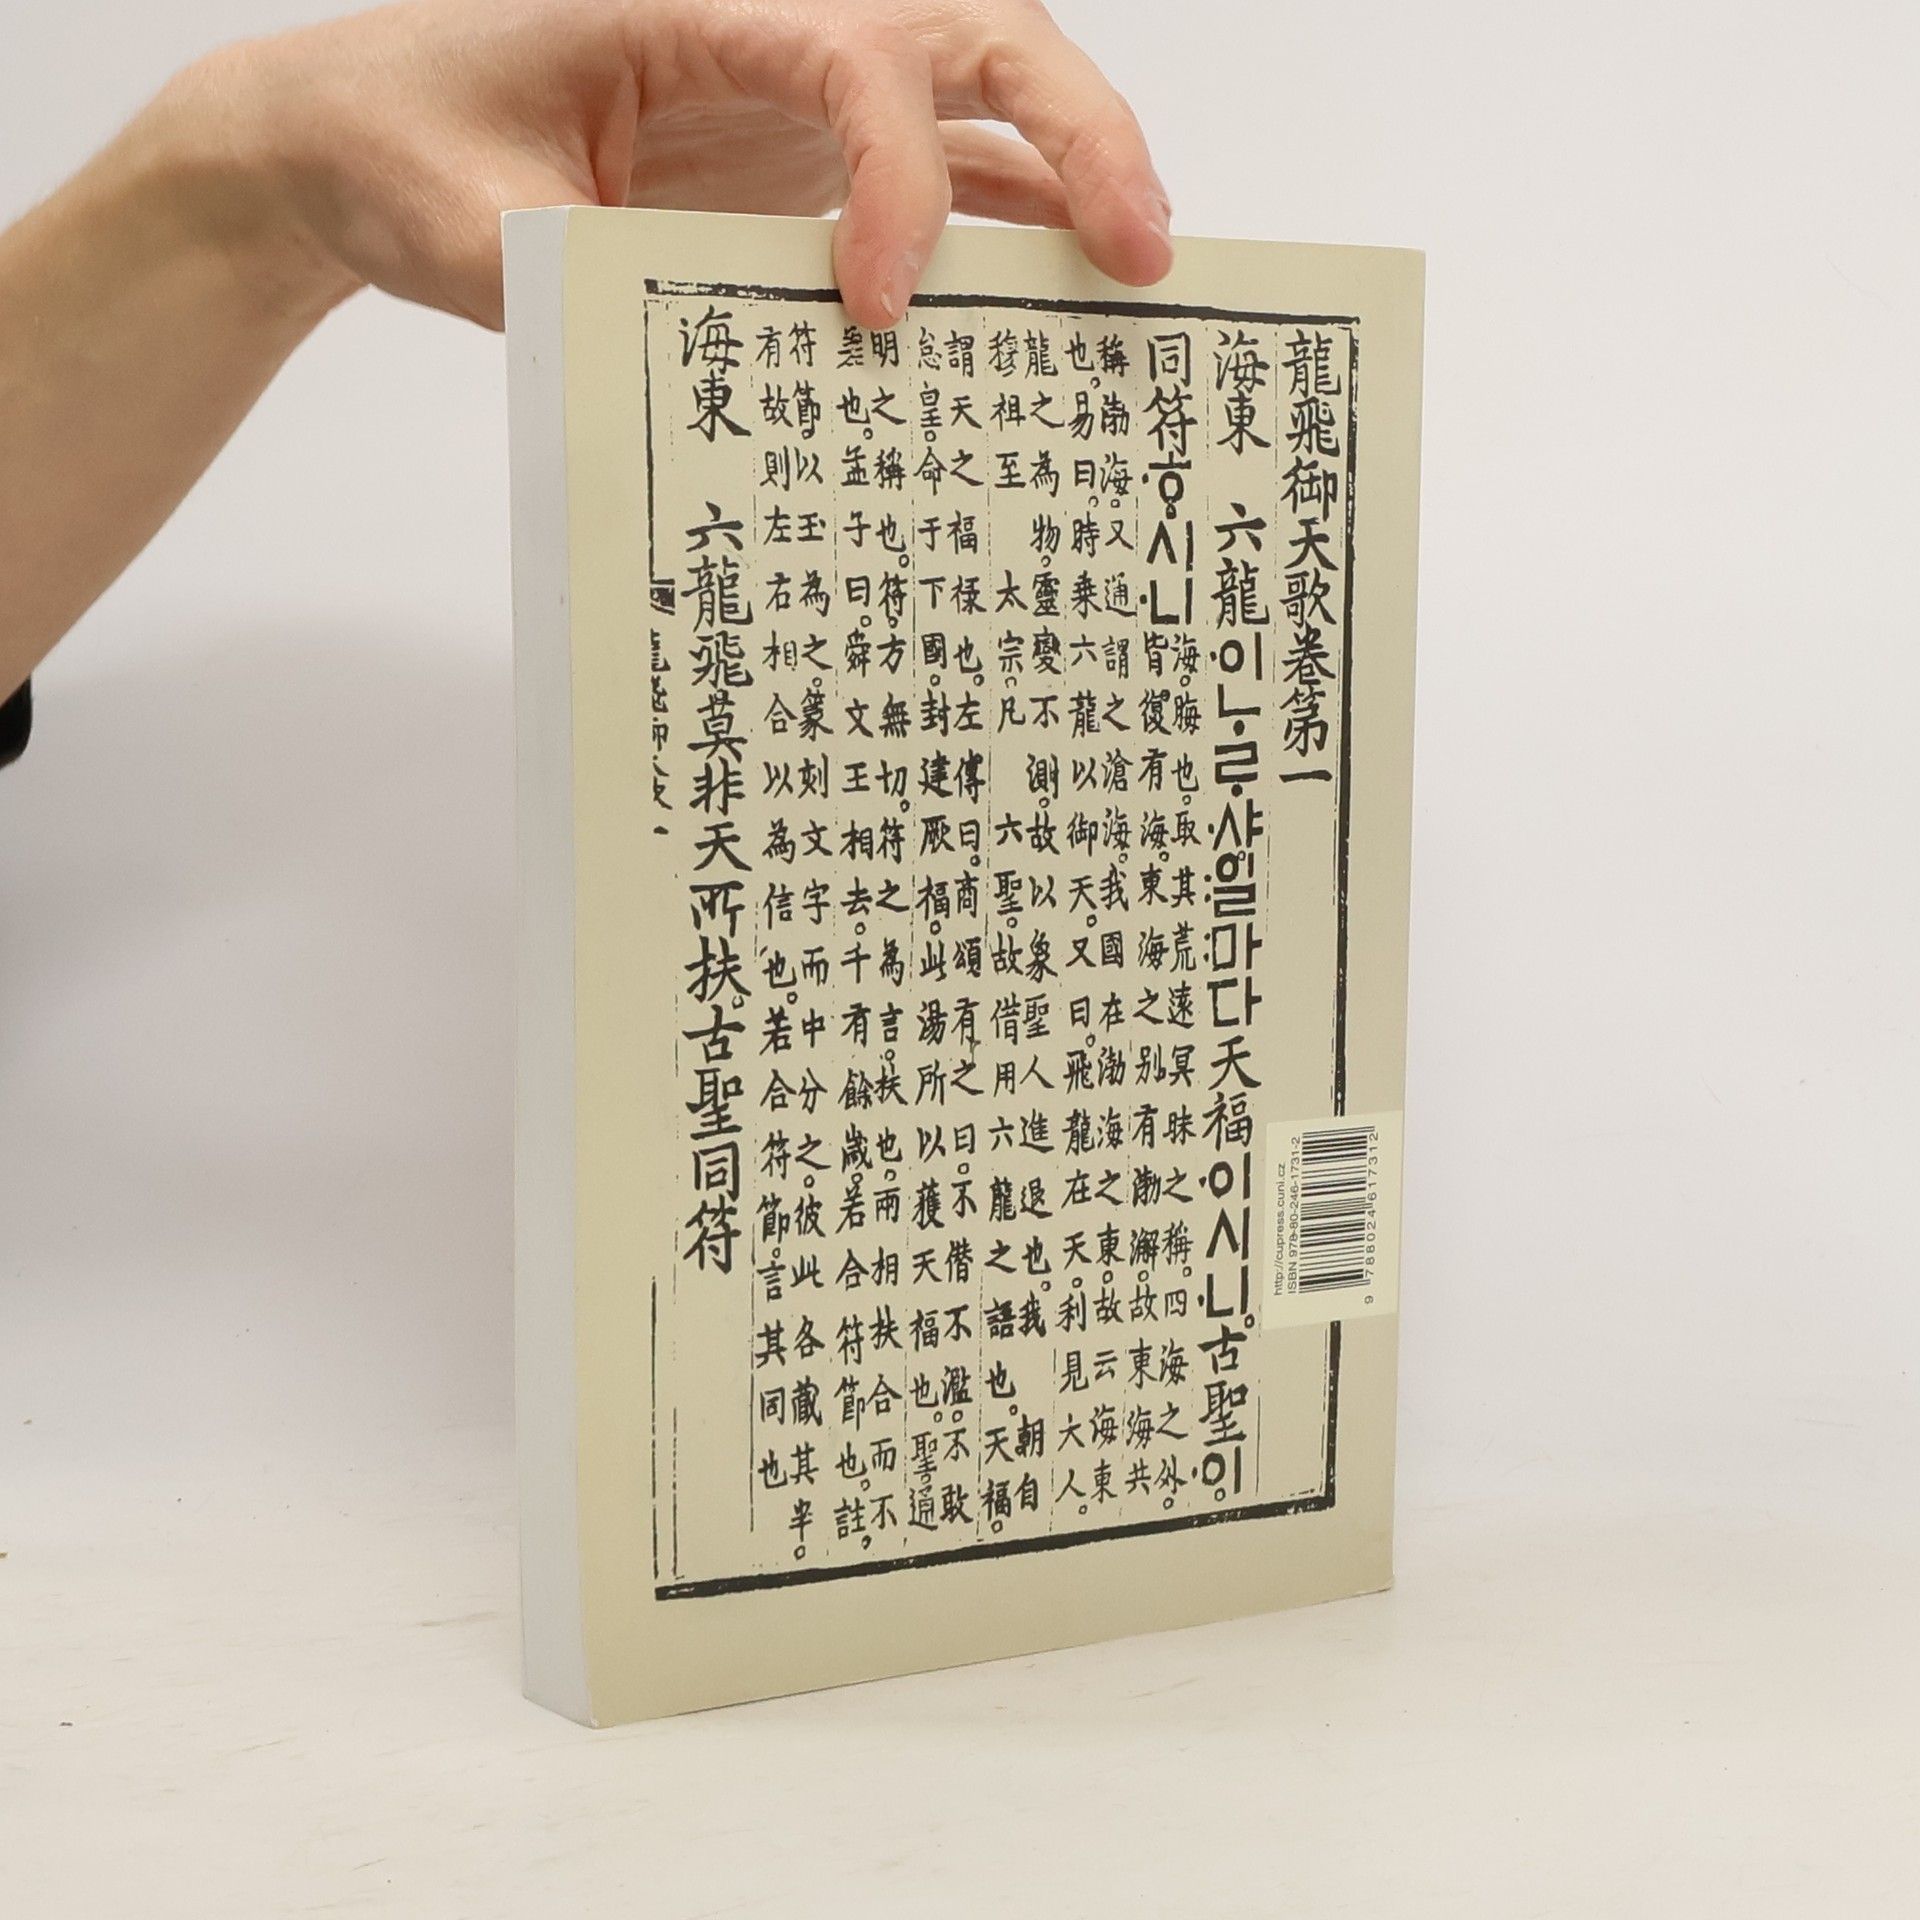 龍飛御天歌卷第一
海東 六龍·이ᄂᆞᄅᆞ·샤:일:마다天福·이시·니。古聖·이
同符·ᄒᆞ·시·니
海。晦也。取其荒遠冥昧之稱。四海之外。
皆復有海。東海之別有渤澥。故東海共
稱渤海。又通謂之滄海。我國在渤海之東。故云海東
也。易曰。時乗六龍以御天。又曰。飛龍在天。利見大人。
龍之為物。靈變不測。故以象聖人進退也。我 朝自
穆祖至 太宗。凡 六聖。故借用六龍之語也。天福。
謂天之福祿也。左傳曰。商頌有之曰。不僭不濫。不敢
怠皇。命于下國。封建厥福。此湯所以獲天福也。聖。通
明之稱也。符。方無切。符之為言。扶也。兩相扶合而不
差也。孟子曰。舜文王相去。千有餘歲。若合符節也。註。
符節。以玉為之。篆刻文字而中分之。彼此各藏其半。
有故則左右相合以為信也。若合符節。言其同也
海東 六龍飛莫非天所扶。古聖同符
http://cupress.cuni.cz
ISBN 978-80-246-1731-2
9 788024 617312